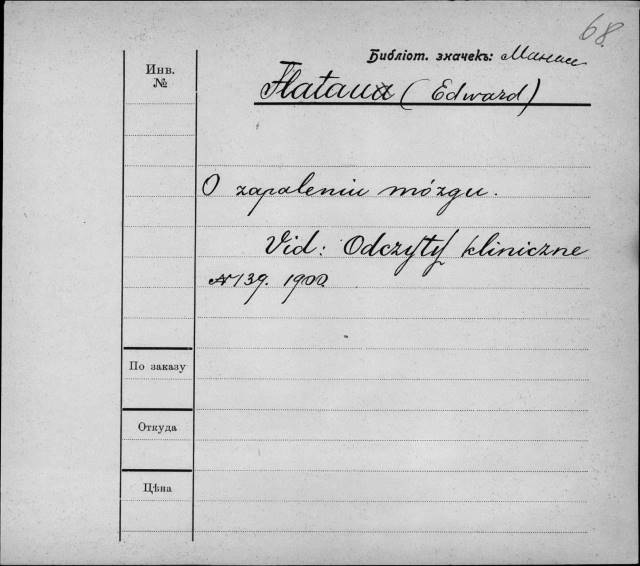 68.
Библіот. значекъ:
Инв.
№
Flatau (Edward)
O zapaleniu mózgu.
Vid: Odczyty kliniczne
№ 139. 1900.
По заказу
Откуда
Цѣна